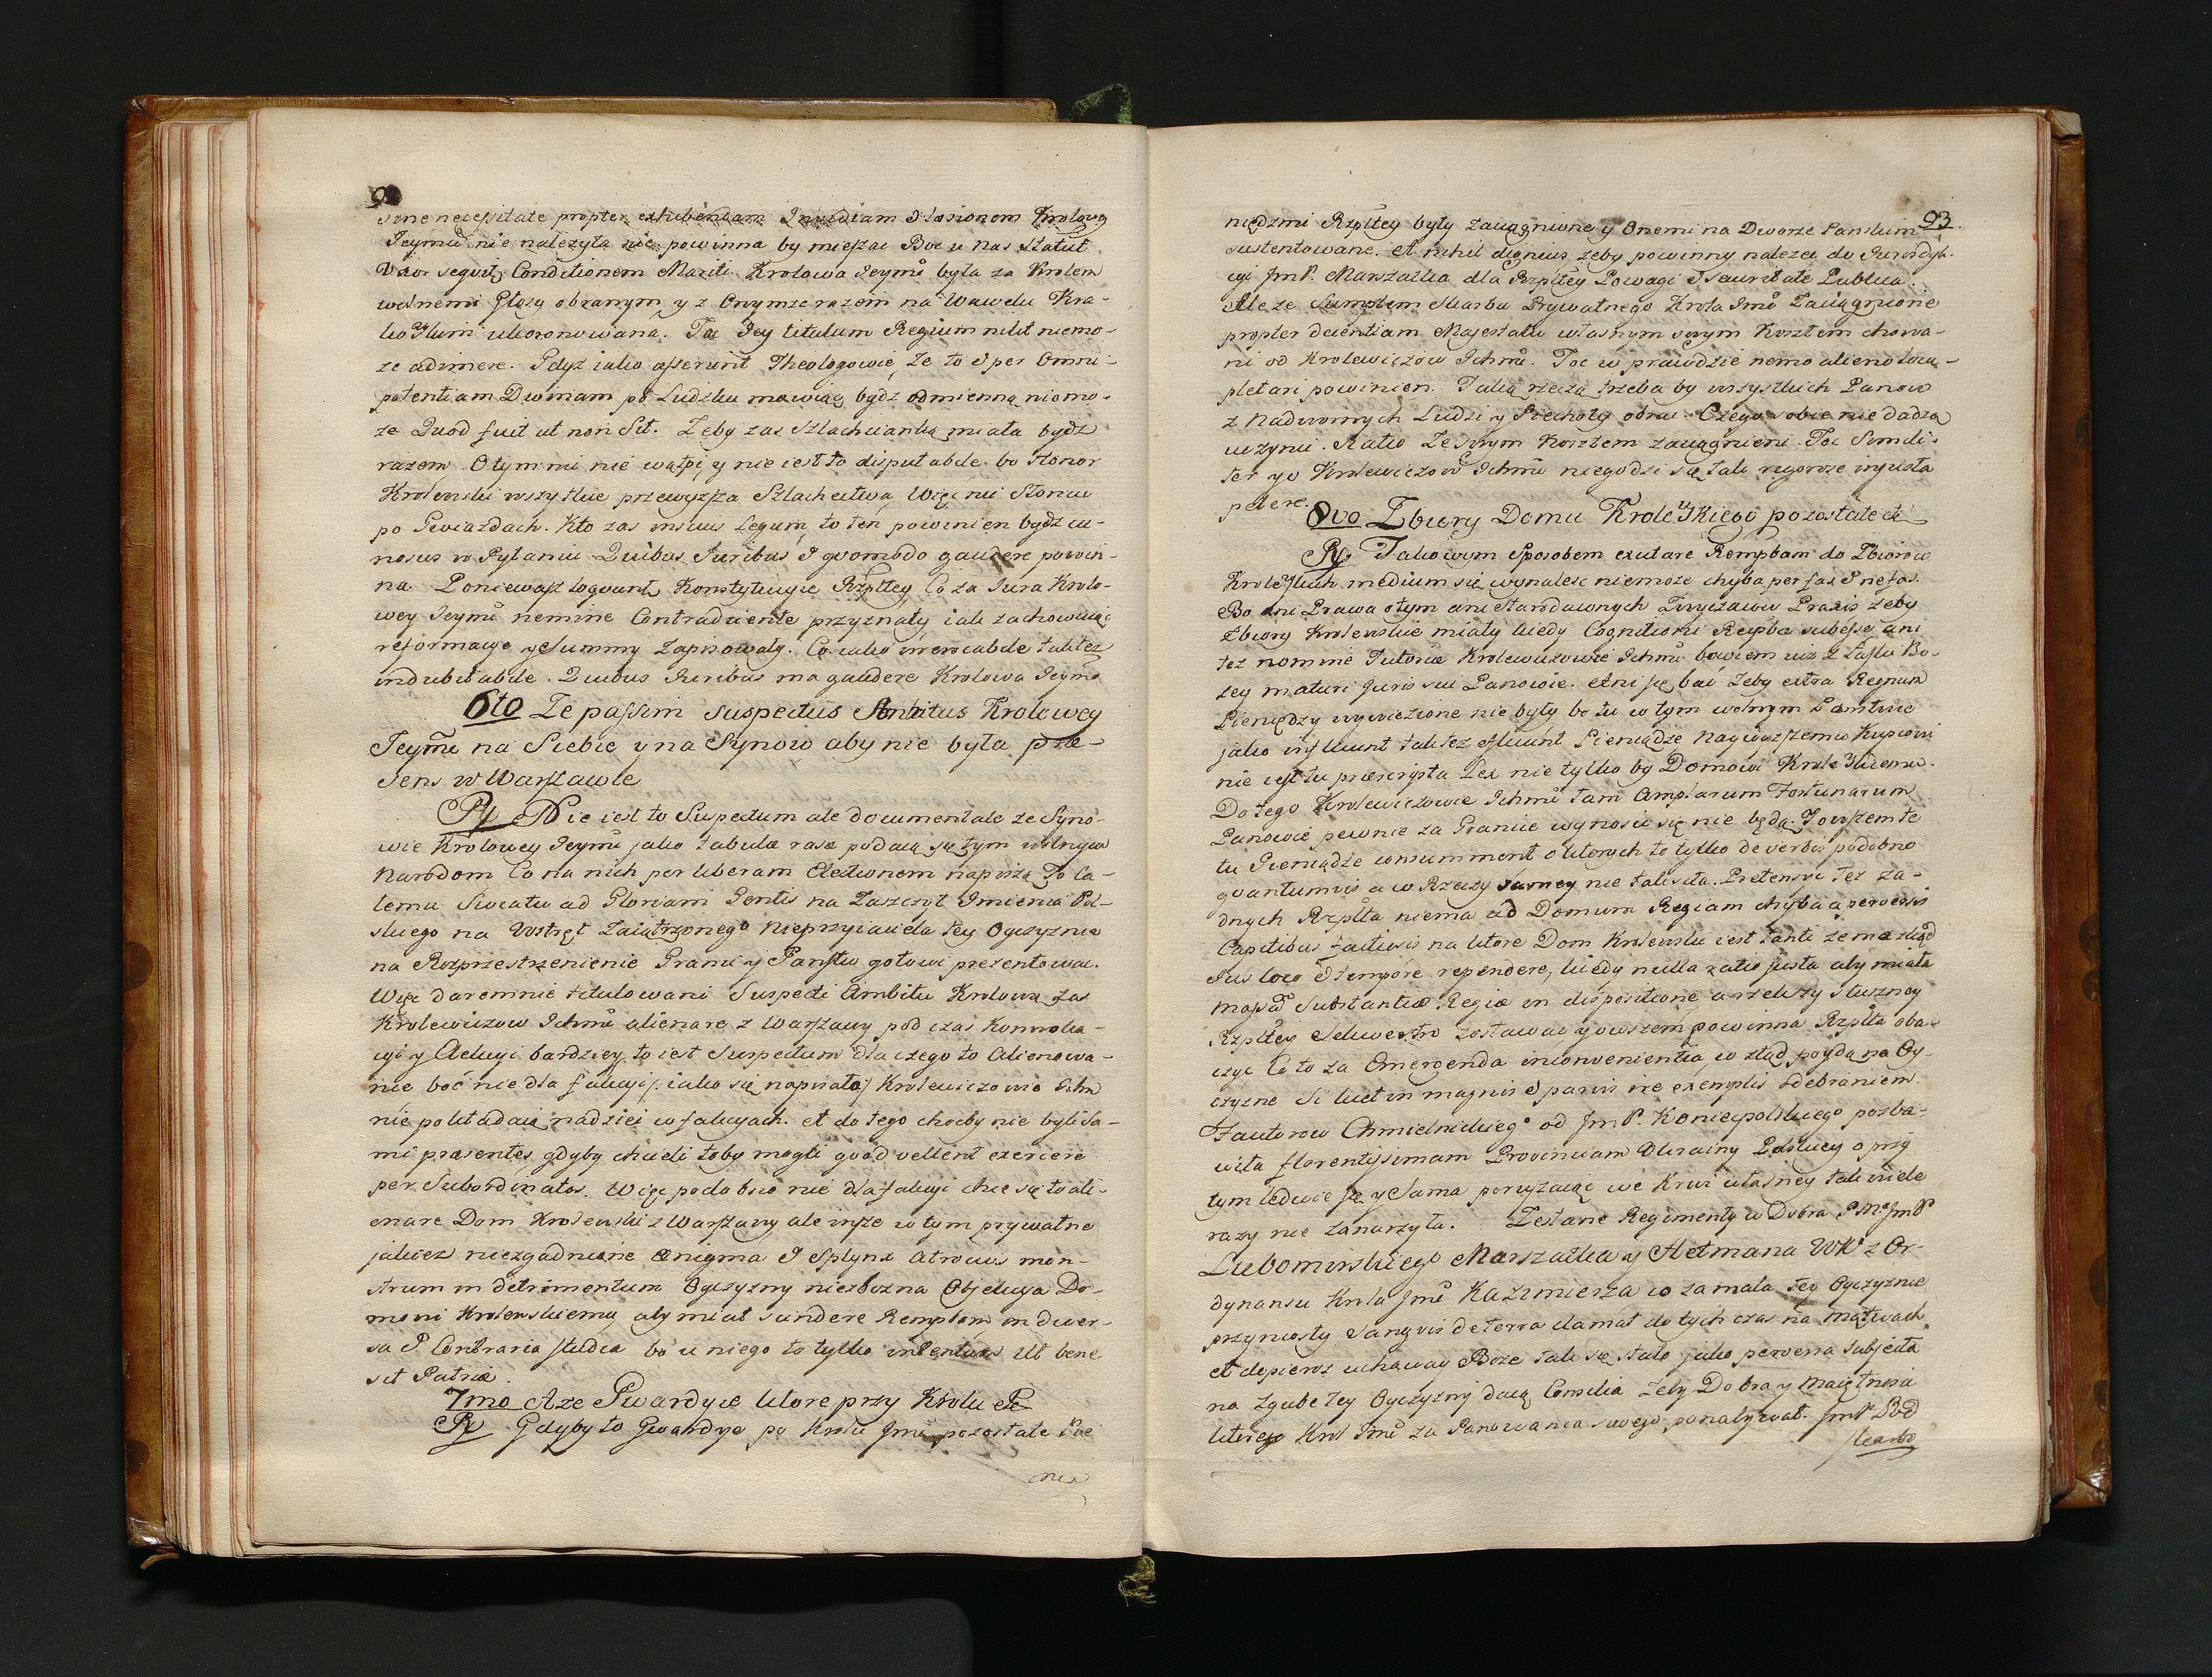 sine necessitate propter exhibendam Invidiam & lasionem Krolowey
Jeymci nie należyta nie powinna by mieszac Boc u nas Statut
Uxor seqvit Conditionem Mariti. Krolowa Jeymć byla za Krolem
wolnemi głosy obranym y z Onymze razem na Wawelu Kra-
kowskim ukoronowana. Ta Jey titulum Regium nikt niemo-
ze adimere. Gdyż iako asserunt Theologowie, że to & per Omni-
potentiam Divinam po Ludzku mowiąc bydz odmienną niemo-
ze Quod fuit ut non Sit. Zeby zas Szlachcianką miała bydz
razem O tym mi nie wątpi y nie iest to disputabile bo Honor
Krolewski wszytkie przewyzsza Szlachectwa, Więc nie Słońcu
po Gwiazdach. Kto zas inscius Legum, to ten powinien bydz cu-
riosus w Pytaniu Quibus Juribus & qvomodo gaudere powin-
na Poniewasz loqvunt Konstytucye Rzpltey, Co za Jura Krolo-
wey Jeymci nemine Contradicente przyznały iak zachowuiąc
reformacye y Summy Zapisowały. Co iako irrevocabile tak tez
indubitabile. Quibus Juribus ma gaudere Krolowa Jeymć
6to Ze passim suspectus Ambitus Krolowey
Jeymci na Siebie y na Synow aby nie była præ-
sens w Warszawie
Rz Nie iest to Suspectum ale documentale ze Syno-
wie Krolowey Jeymci jako tabulæ rasæ podaią się tym wolnym
Narodom Co na nich per liberam Electionem napiszą To ca-
łemu Swiatu ad Gloriam Gentis na Zaszczyt Imienia Pol-
skiego na Wstręt Zaiątrzonego Nieprzyiaciela tey Oyczyznie
na Rozprzestrzenienie Granic y Panstw gotowi prezentowac.
Więc daremnie titulowani Suspecti Ambitu Krolowa zas
Krolewiczow Ichmć alienare z Warszawy pod czas Konwoka-
cyi y Elekcyi bardziey to iest Suspectum dla czego to Alienowa-
nie boć nie dla fakcyi jako się napisało Krolewiczowie Ichm
nie pokładaią nadziei w fakcyach. et do tego chocby nie byli Sa-
mi præsentes gdyby chcieli toby mogli qvod vellent exercere
per Subordinatos. Więc podobno nie dla fakcyi chce się to ali-
enare Dom Krolewski z Warszawy ale insze w tym prywatne
jakies niezgadnione Ænigma & Sphynx atrocius mon-
strum in detrimentum Oyczyzny niezbozna Objekcya Do-
mowi Krolewskiemu aby miał scindere Rempbam in diver-
sa & Contraria studia bo u niego to tylko intentum Ut bene
sit Patriæ.
7mo A ze Gwardye ktore przy Krolu &c
Rz Gdyby to Gwardye po Krolu Jmci pozostałe Pie
nię
93.
niędzmi Rzpltey były zaciągnione y Onemi na Dworze Panskim
sustentowane. et nihil dignius zeby powinny nalezec do Jurisdyk-
cyi JmP. Marszałka dla Rzpltey Powagi & Securitate Publica.
Ale ze Sumptem Skarbu Prywatnego Krola Jmci Zaciągnione
propter decentiam Majestatu własnym swym Kosztem chowa-
ni od Krolewiczow Ichmć. Toc w prawdzie nemo alieno locu-
pletari powinien. Taką rzeczą trzeba by wszystkich Panow
z Nadwornych Ludzi y Piechoty obrac. Czego sobie nie dadzą
uczynic. Ratio Ze Swym Kosztem zaciągnieni. Toc Simili-
ter y o Krolewiczow Ichmć niegodzi się tak rygorose injusta
petere.
8vo Zbiory Domu Krolewskiego pozostałe &
Rz Takowym Sposobem exutare Rempbam do Zbiorow
Krolewskich medium się wynalesc niemoze chyba per fas & nefas.
Bo ani Prawa o tym ani Starodawnych Zwyczaiow Praxis zeby
Zbiory Krolewskie miały kiedy Cognitioni Reipbæ subesse ani
tez nomine Tutoriæ Krolewiczowie Ichmć bowiem iuż z Łaski Bo-
zey maturi Juris sui Panowie. Ani się bać Zeby extra Regnum
Pieniędzy wywiezione nie były bo tu w tym wolnym Panstwie
jako influunt tak tez effluunt Pieniądze Naywyzszemu Kupcowi
nie iest tu præscripta Lex nie tylko by Domowi Krolewskiemu.
Do tego Krolewiczowie Ichmć tam Amplarum Fortunarum
Panowie pewnie za Granice wynosic się nie będą. Y owszem te
tu Pieniądze consumment o ktorych to tylko de verbis podobno
qvantumvis a w Rzeczy samey nie tak siła. Pretensyi Tez za-
dnych Rzplta niema ad Domum Regiam chyba a perversis
Capitibus factiosis na ktore Dom Krolewski iest tanti ze ma skąd
Jus loco & tempore rependere, kiedy nulla ratio justa aby miała
massa Substantiæ Regiæ in dispositione a w slusznoy
Rzpltey Sekwestro zostawac y owszem powinna Rzplta oba-
czyc Co to za Emergenda inconvenientia, w ztąd poydą na Oy-
czyzne Si licet in magnis & parvis ire exemplis Odebraniem
Fautorow Chmielnickiego od JmP. Koniecpolskiego pozba-
wiła florentissimam Provinciam Ukrainy Polskiey o przy
tym ledwie się y Sama poruszaiąc we Krwi własney tak wiele
razy nie zanurzyła. Zesłane Regimenty w Dobra S.M. JmP
Lubomirskiego Marszałka y Hetmana WK z Or-
dynansu Krola Jmci Kazimierza co za mala tey Oyczyznie
przyniosły Sangvis de terra clamat do tych czas na Mątwach.
et dopieroz uchoway Boze tak się stało jako perversa Subjecta
na Zgubę tey Oyczyzny daią Consilia Zeby Dobra y Maiętnosci
ktorego Krol Jmć za Panowania swego ponabywał. JmP Pod
skarbi